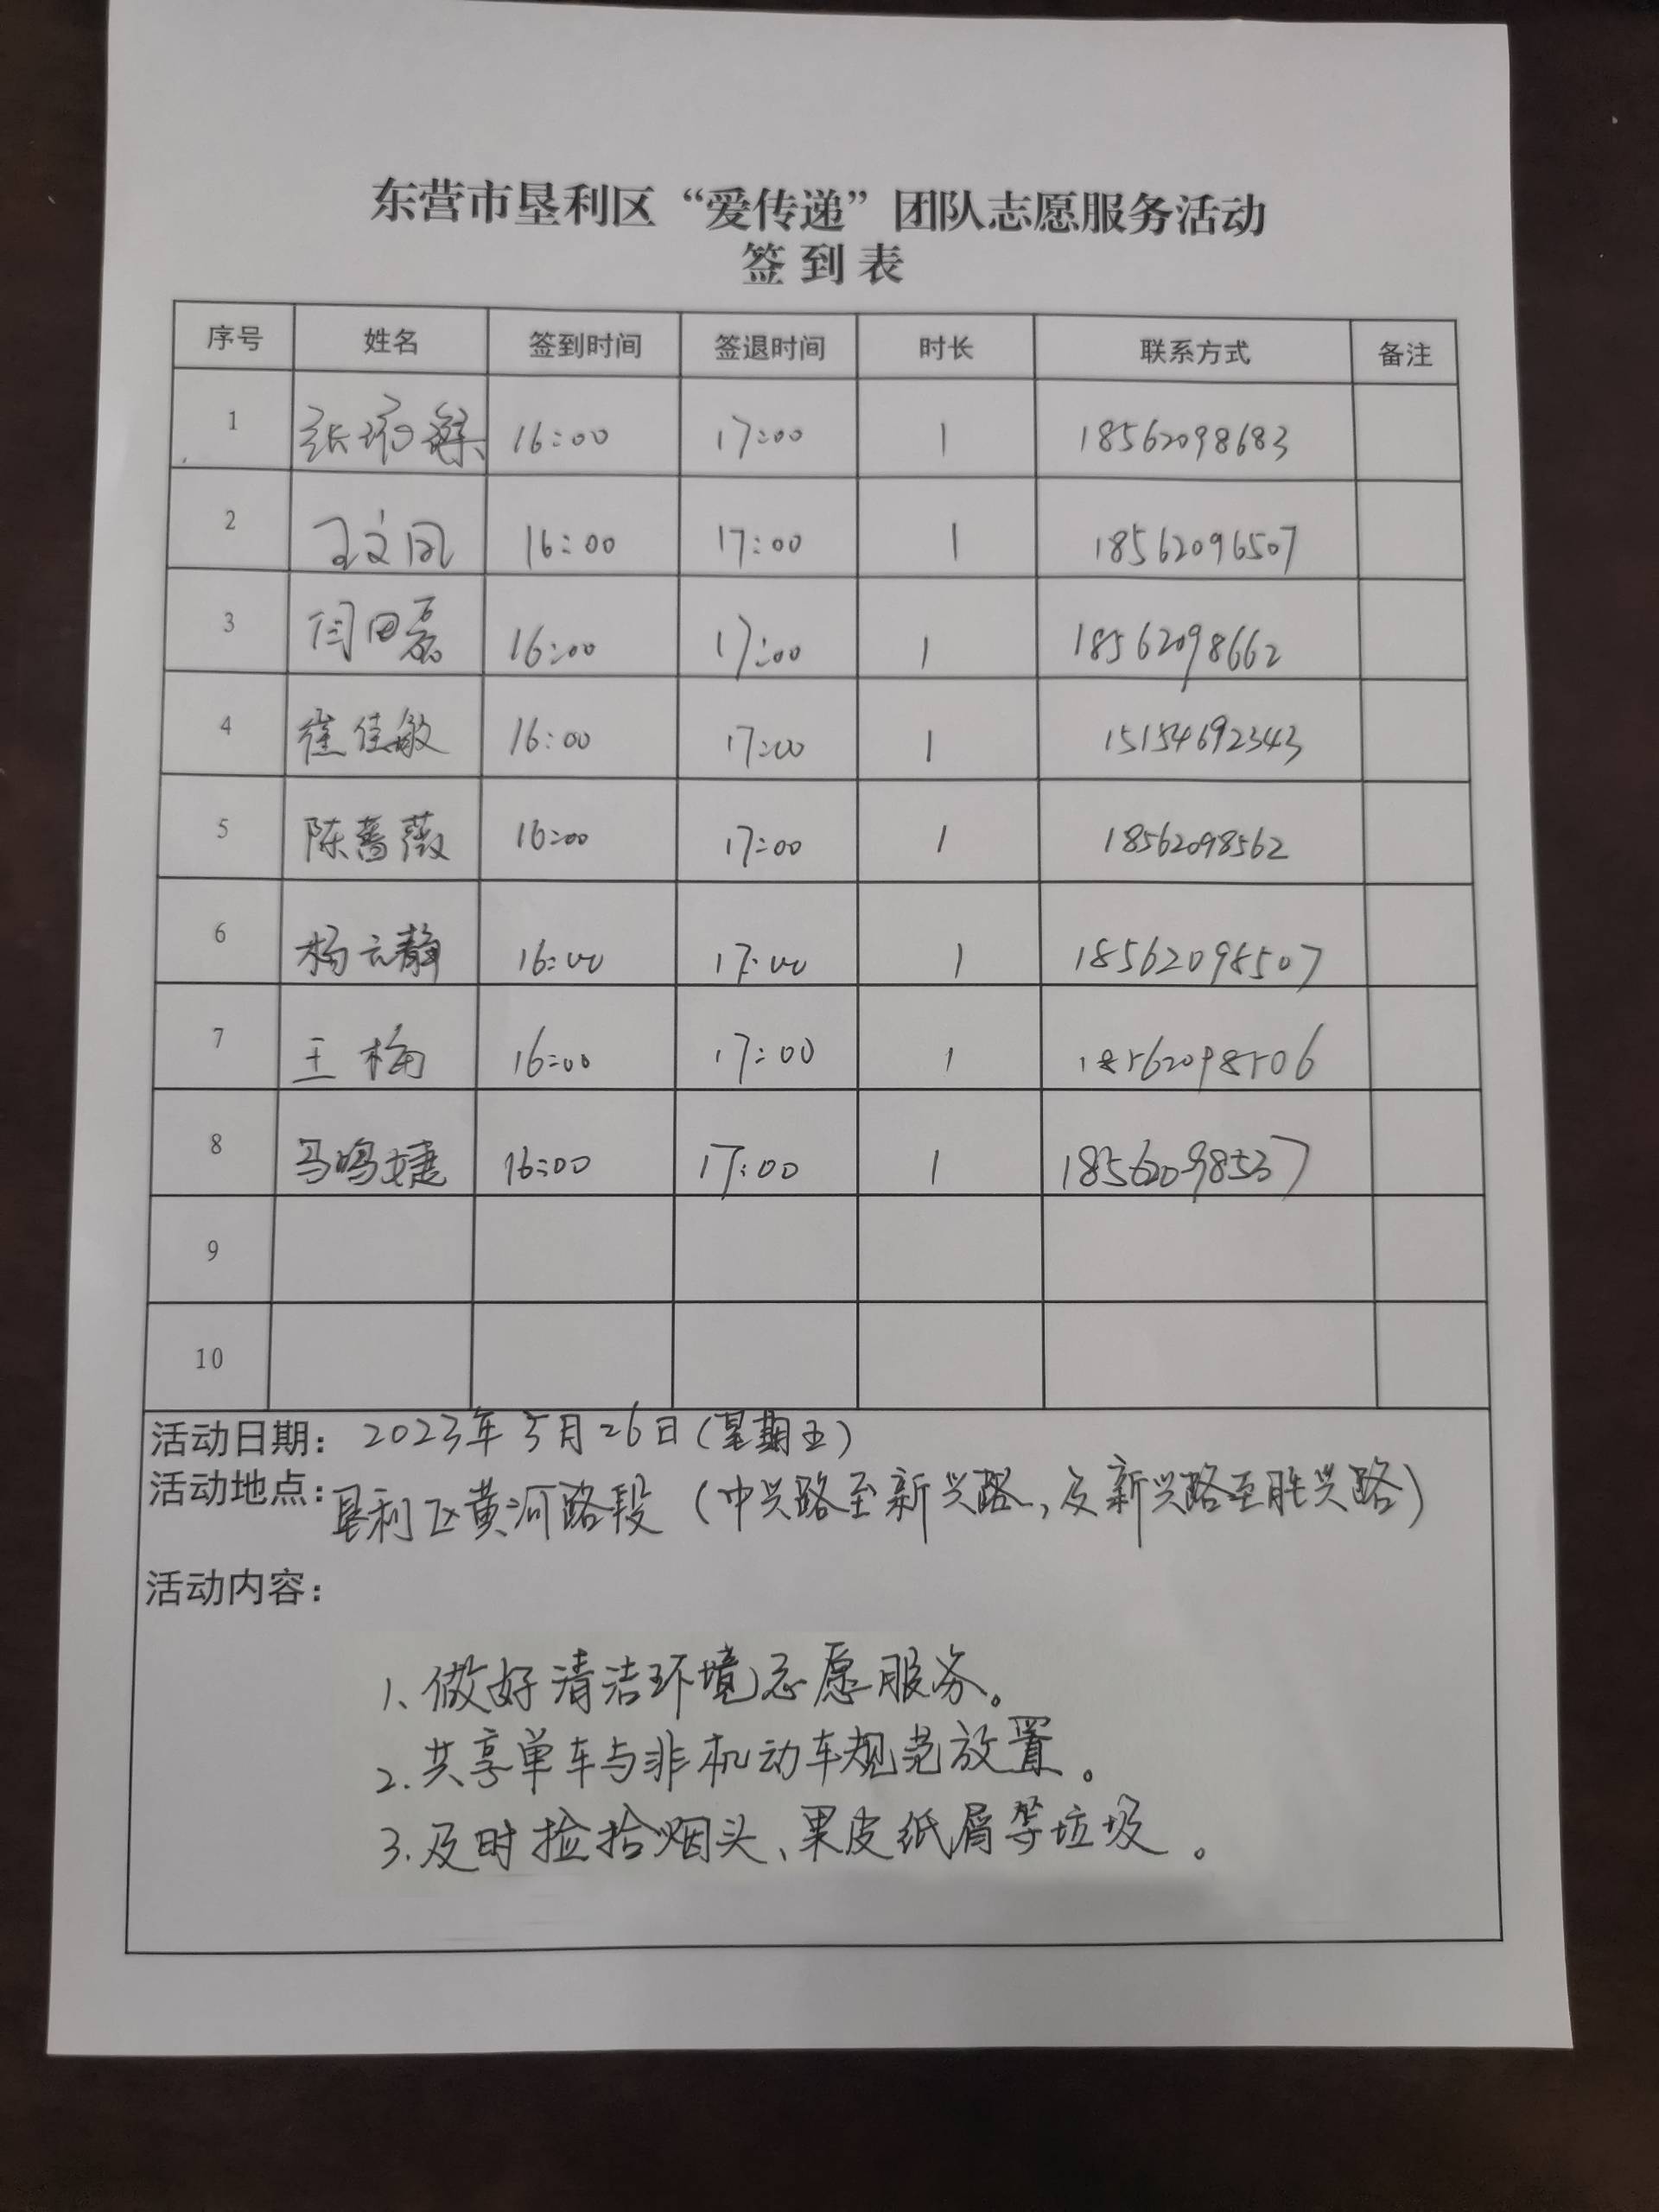 东营市垦利区“爱传递”团队志愿服务活动
签到表
序号 姓名 签到时间 签退时间 时长 联系方式 备注
1 张 16:00 17:00 1 18562098683
2 王文凤 16:00 17:00 1 18562096507
3 闫田磊 16:00 17:00 1 18562098662
4 崔佳敏 16:00 17:00 1 15154692343
5 陈蔷薇 16:00 17:00 1 18562098562
6 杨云静 16:00 17:00 1 18562098507
7 王梅 16:00 17:00 1 18562098506
8 马鸣婕 16:00 17:00 1 18562098537
9
10
活动日期：2023年5月26日(星期五)
活动地点：垦利区黄河路段(中兴路至新兴路,及新兴路至胜兴路)
活动内容：
1、做好清洁环境志愿服务。
2.共享单车与非机动车规范放置。
3.及时捡拾烟头、果皮纸屑等垃圾。